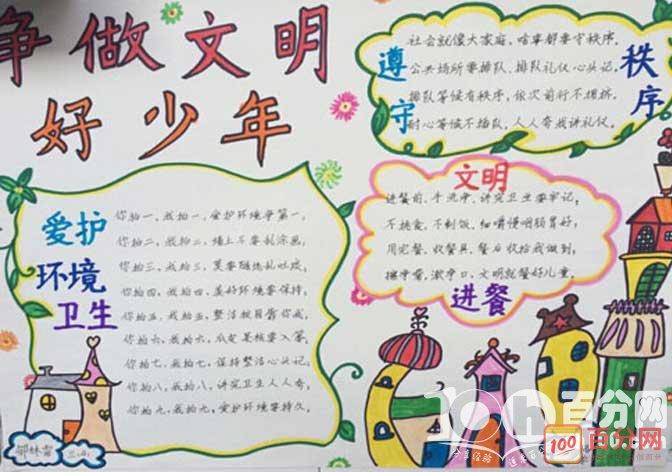 争做文明
好少年
遵守
秩序
社会就像大家庭，啥事都要守秩序。
公共场所要排队，排队礼仪心头记。
排队等候有秩序，依次前行不拥挤。
耐心等候不插队，人人夸我讲礼仪。
文明
进餐
进餐前，手洗净，讲究卫生要牢记；
不挑食，不剩饭，细嚼慢咽肠胃好；
用完餐，收餐具，餐后收拾我做到；
擦净嘴，漱净口，文明就餐好儿童。
爱护
环境
卫生
你拍一，我拍一，爱护环境争第一，
你拍二，我拍二，墙上不要乱涂画，
你拍三，我拍三，莫要随地乱吐痰，
你拍四，我拍四，美好环境要保持，
你拍五，我拍五，整洁校园靠你我，
你拍六，我拍六，瓜皮果核要入篓，
你拍七，我拍七，保持整洁心头记，
你拍八，我拍八，讲究卫生人人夸，
你拍九，我拍九，爱护环境要持久。
百分网
100
百分网